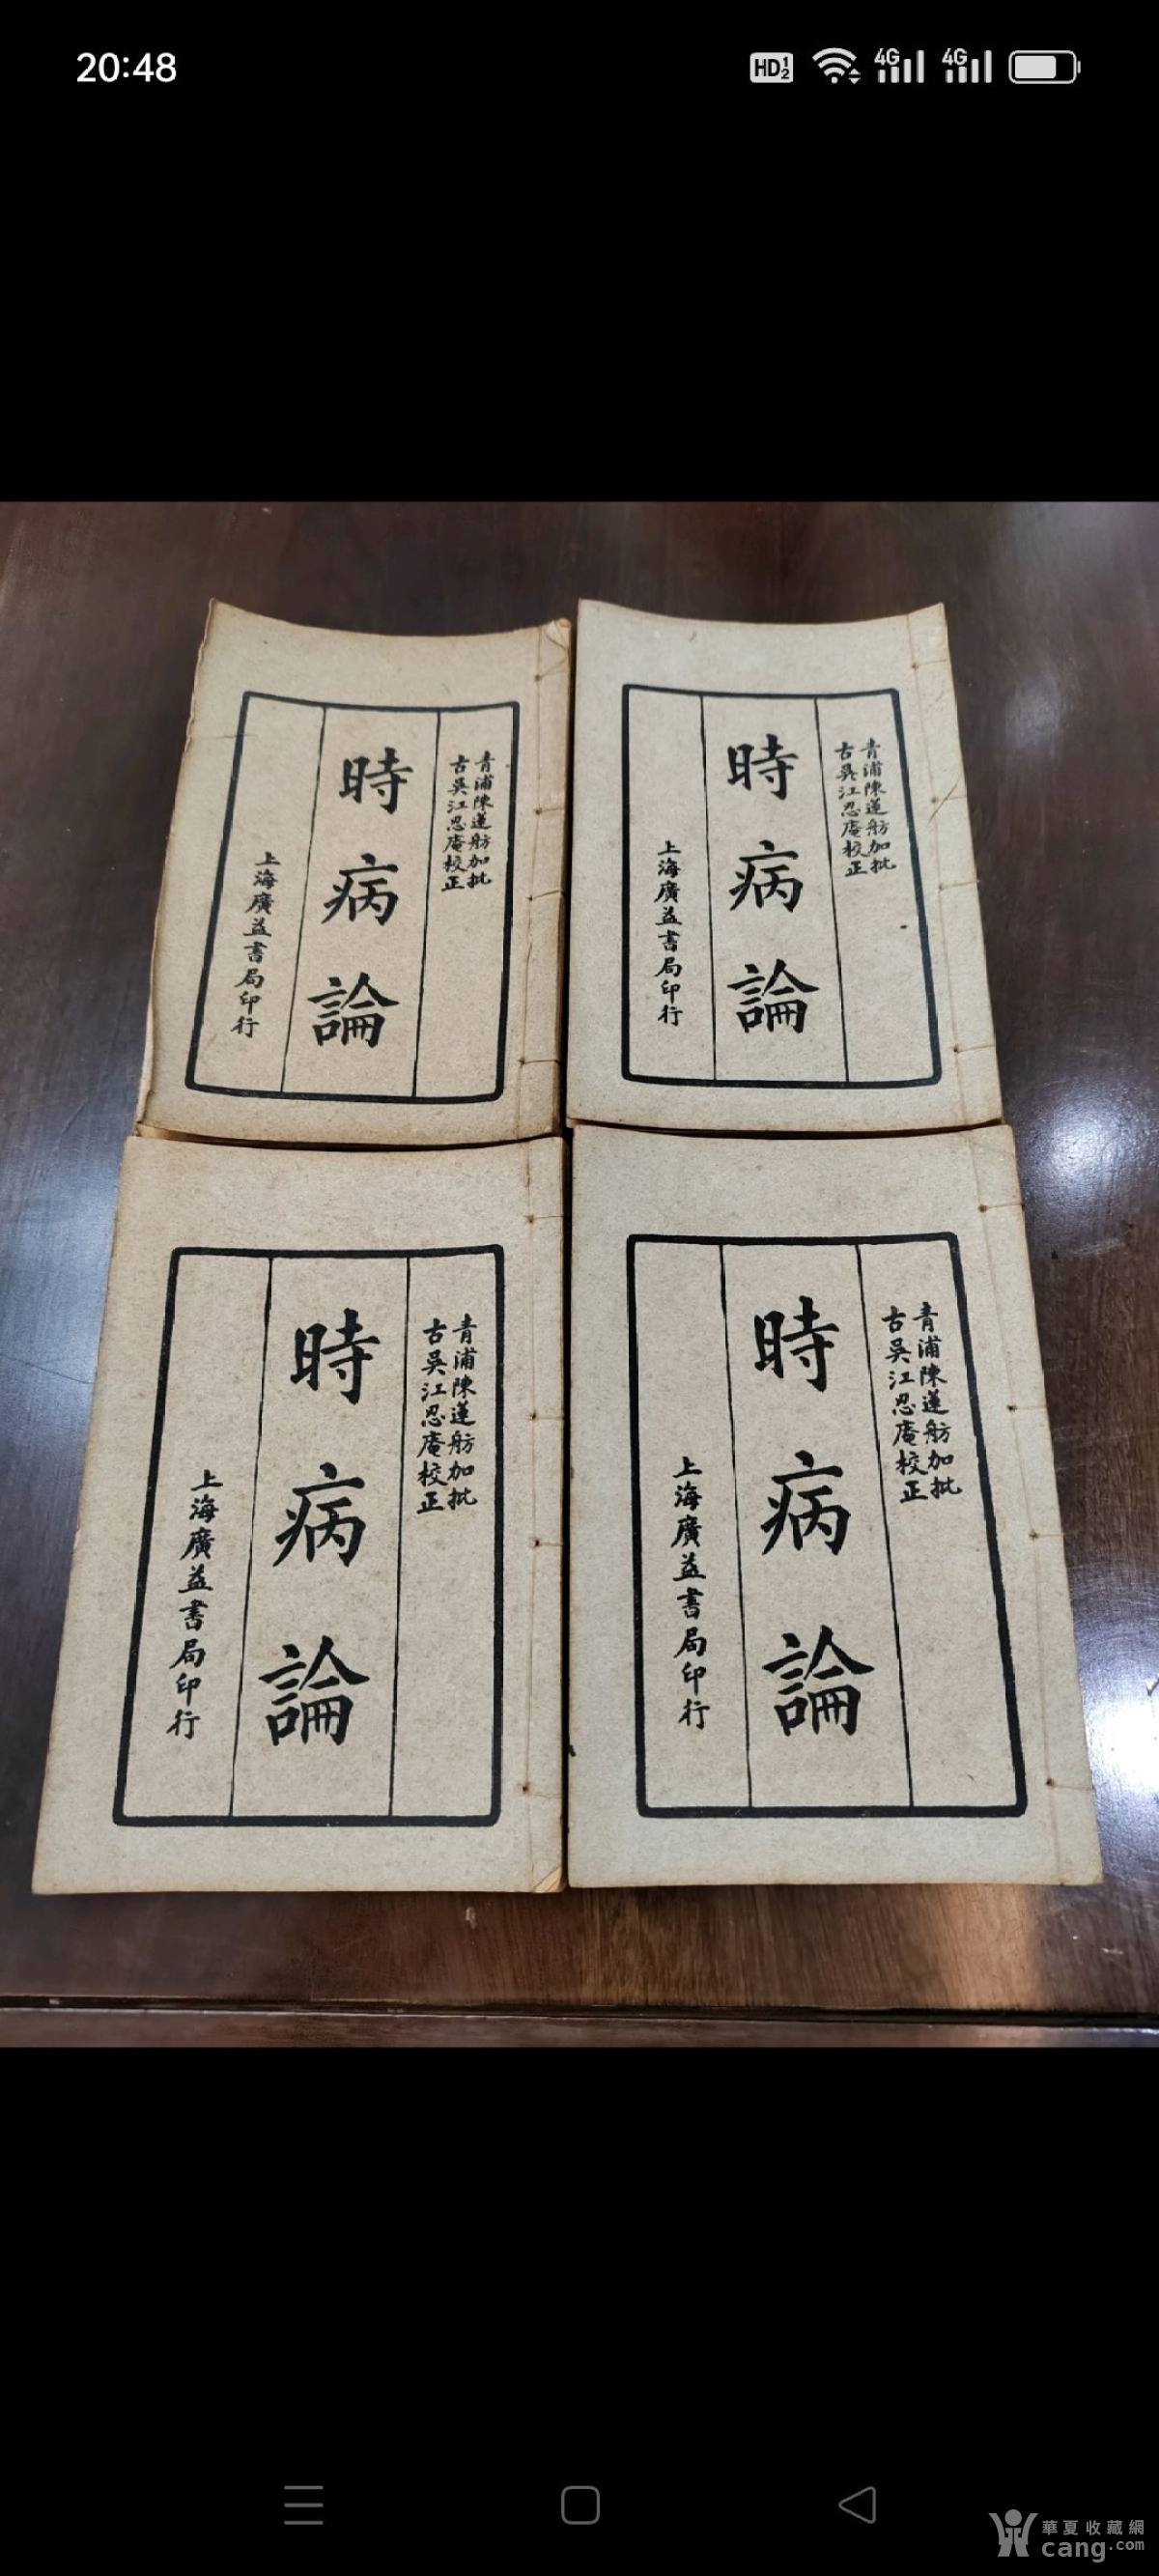 20:48
HD 1 2
4G
4G
青浦陳蓮舫加批
古吳江忍庵校正
時病論
上海廣益書局印行
青浦陳蓮舫加批
古吳江忍庵校正
時病論
上海廣益書局印行
青浦陳蓮舫加批
古吳江忍庵校正
時病論
上海廣益書局印行
青浦陳蓮舫加批
古吳江忍庵校正
時病論
上海廣益書局印行
華夏收藏網
cang.com